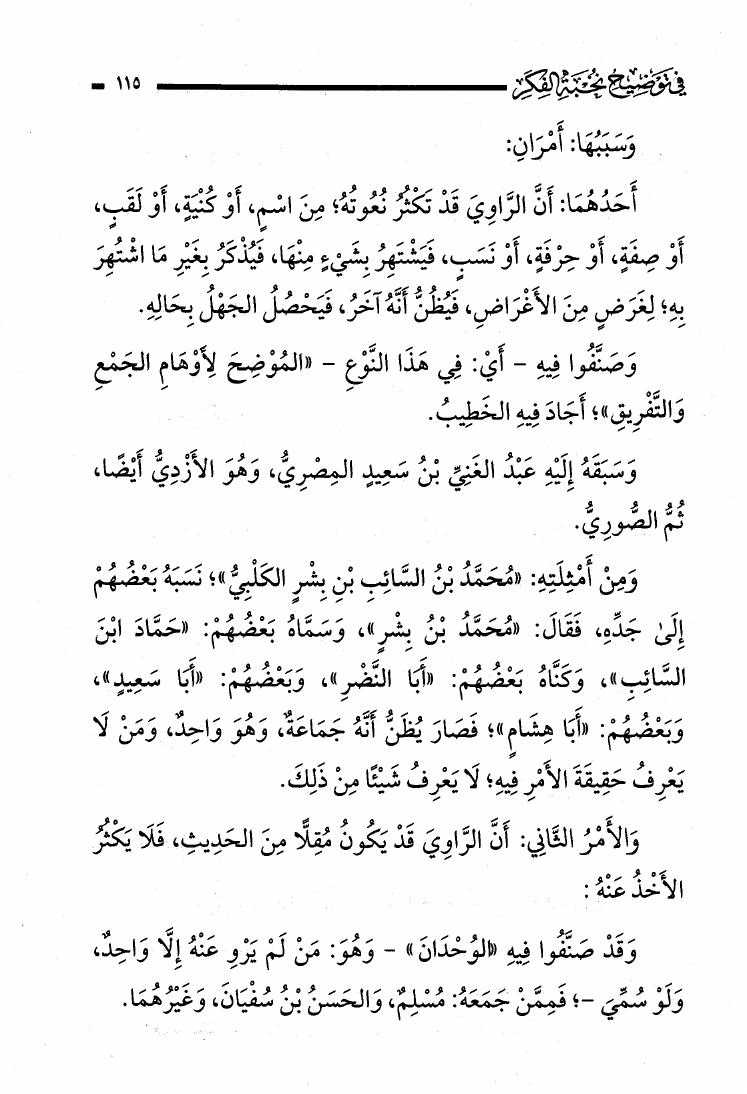 في توضيح نخبة الفكر ١١٥
وَسَبَبُهَا: أَمْرَانِ:
أَحَدُهُمَا: أَنَّ الرَّاوِيَ قَدْ تَكْثُرُ نُعُوتُهُ؛ مِنَ اسْمٍ، أَوْ كُنْيَةٍ، أَوْ لَقَبٍ،
أَوْ صِفَةٍ، أَوْ حِرْفَةٍ، أَوْ نَسَبٍ، فَيَشْتَهِرُ بِشَيْءٍ مِنْهَا، فَيُذْكَرُ بِغَيْرِ مَا اشْتُهِرَ
بِهِ؛ لِغَرَضٍ مِنَ الأَغْرَاضِ، فَيُظَنُّ أَنَّهُ آخَرُ، فَيَحْصُلُ الجَهْلُ بِحَالِهِ.
وَصَنَّفُوا فِيهِ - أَيْ: فِي هَذَا النَّوْعِ - «المُوْضِحَ لِأَوْهَامِ الجَمْعِ
وَالتَّفْرِيقِ»؛ أَجَادَ فِيهِ الخَطِيبُ.
وَسَبَقَهُ إِلَيْهِ عَبْدُ الغَنِيِّ بْنُ سَعِيدٍ المِصْرِيُّ، وَهُوَ الأَزْدِيُّ أَيْضًا،
ثُمَّ الصُّورِيُّ.
وَمِنْ أَمْثِلَتِهِ: «مُحَمَّدُ بْنُ السَّائِبِ بْنِ بِشْرٍ الكَلْبِيُّ»؛ نَسَبَهُ بَعْضُهُمْ
إِلَىٰ جَدِّهِ، فَقَالَ: «مُحَمَّدُ بْنُ بِشْرٍ»، وَسَمَّاهُ بَعْضُهُمْ: «حَمَّادَ ابْنَ
السَّائِبِ»، وَكَنَّاهُ بَعْضُهُمْ: «أَبَا النَّضْرِ»، وَبَعْضُهُمْ: «أَبَا سَعِيدٍ»،
وَبَعْضُهُمْ: «أَبَا هِشَامٍ»؛ فَصَارَ يُظَنُّ أَنَّهُ جَمَاعَةٌ، وَهُوَ وَاحِدٌ، وَمَنْ لَا
يَعْرِفُ حَقِيقَةَ الأَمْرِ فِيهِ؛ لَا يَعْرِفُ شَيْئًا مِنْ ذَلِكَ.
وَالأَمْرُ الثَّانِي: أَنَّ الرَّاوِيَ قَدْ يَكُونُ مُقِلًّا مِنَ الحَدِيثِ، فَلَا يَكْثُرُ
الأَخْذُ عَنْهُ :
وَقَدْ صَنَّفُوا فِيهِ «الوُحْدَانَ» - وَهُوَ: مَنْ لَمْ يَرْوِ عَنْهُ إِلَّا وَاحِدٌ،
وَلَوْ سُمِّيَ -؛ فَمِمَّنْ جَمَعَهُ: مُسْلِمٌ، وَالحَسَنُ بْنُ سُفْيَانَ، وَغَيْرُهُمَا.